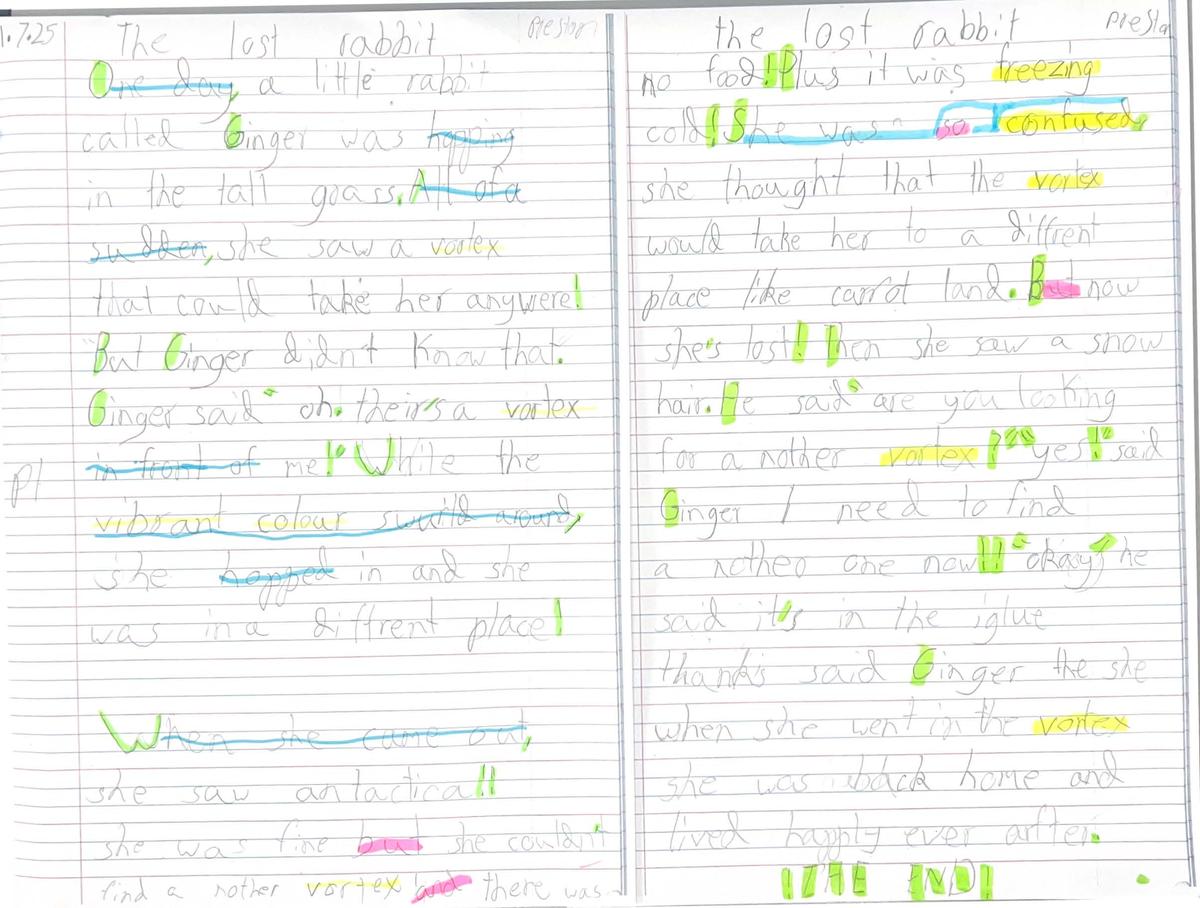 1.7.25
The lost rabbit
Preston
One day, a little rabbit
called Ginger was hopping
in the tall grass. All of a
sudden, she saw a vortex
that could take her anywere!
But Ginger didn't know that.
Ginger said " oh. their's a vortex
in front of me!" While the
P1
vibrant colour swirld around,
she hopped in and she
was in a diffrent place!
When she came out,
she saw antactica!!
she was fine but she couldn't
find a nother vortex and there was
the lost rabbit
Preston
no food! Plus it was freezing
cold! She was so confused,
she thought that the vortex
would take her to a diffrent
place like carrot land. But now
she's lost! Then she saw a snow
hair. He said " are you looking
for a nother vortex?" "yes!" said
Ginger I need to find
a nother one now!! "okay" he
said it's in the iglue
thanks said Ginger the she
when she went in the vortex
she was back home and
lived happly ever arfter.
!THE END!